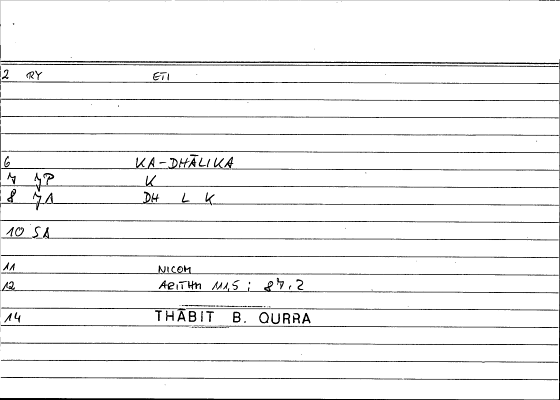 2 RY ETI
6 KA-DHĀLIKA
7 JP K
8 JA DH L K
10 SA
11 NICOM
12 ARITHM 111,5 ; 87,2
14 THĀBIT B. QURRA